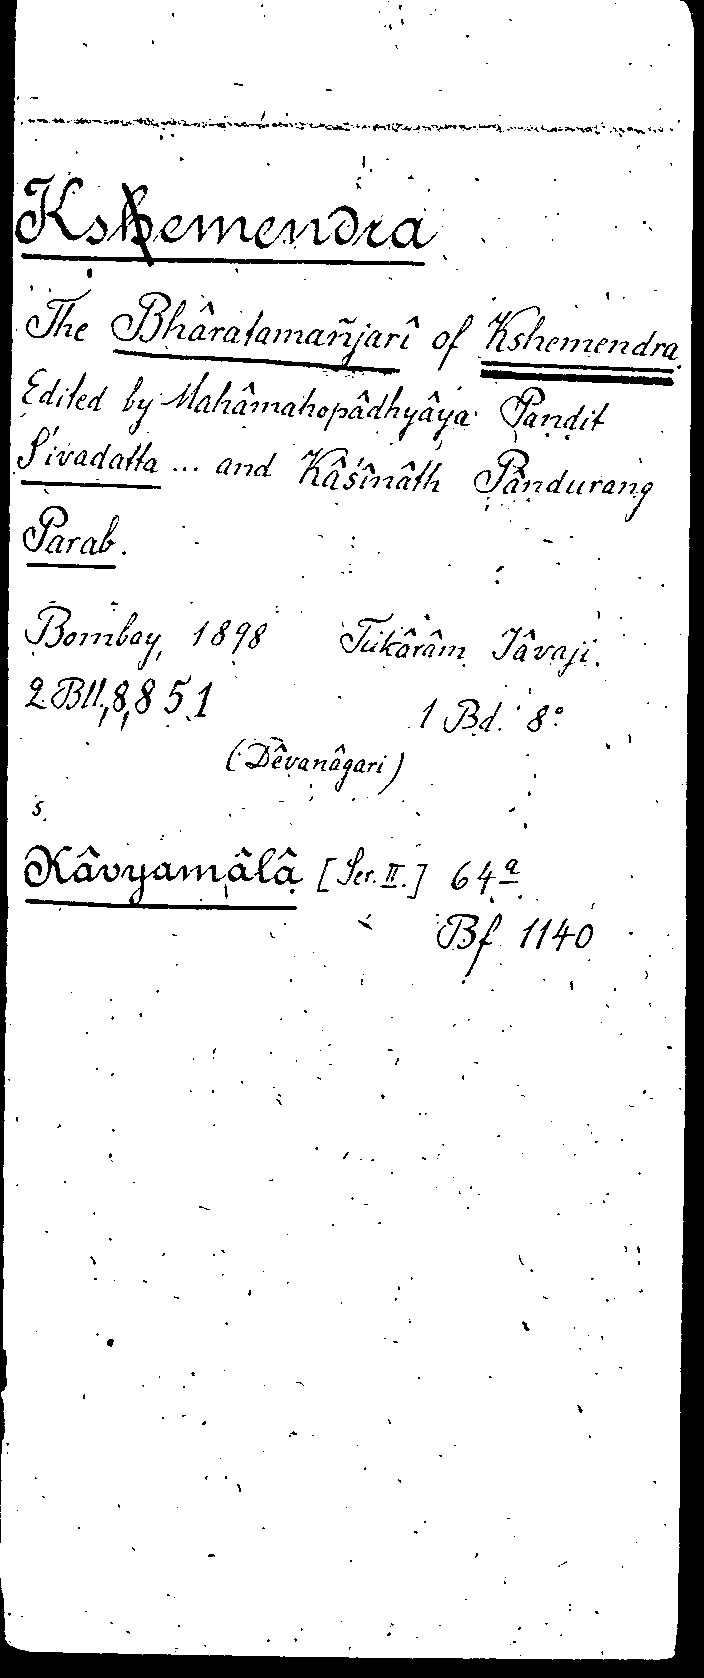 Kshemendra
The Bhâratamañjarî of Kshemendra.
Edited by Mahâmahopâdhyâya Paṇḍit
S'ivadatta ... and Kâśînâth Pâṇḍurang
Parab.
Bombay, 1898 Tukârâm Jâvaji.
2 Bll., 8, 851 1 Bd. 8°
(Dêvanâgari)
s.
Kâvyamâlâ [Ser. II.] 64a
Bf 1140